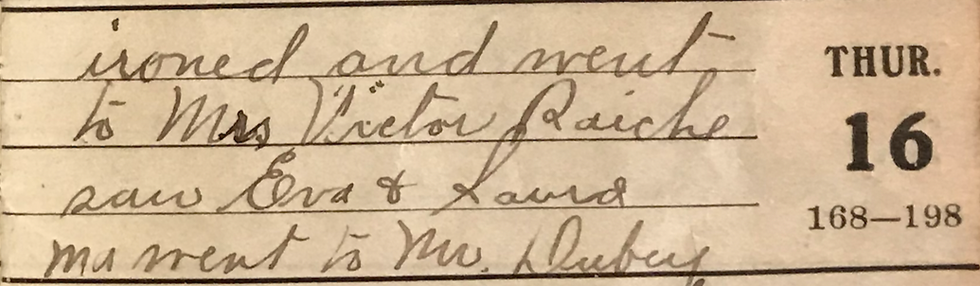 ironed and went
to Mrs Victor Raiche
saw Eva & Laura
ma went to Mr. Dubey
THUR.
16
168—198